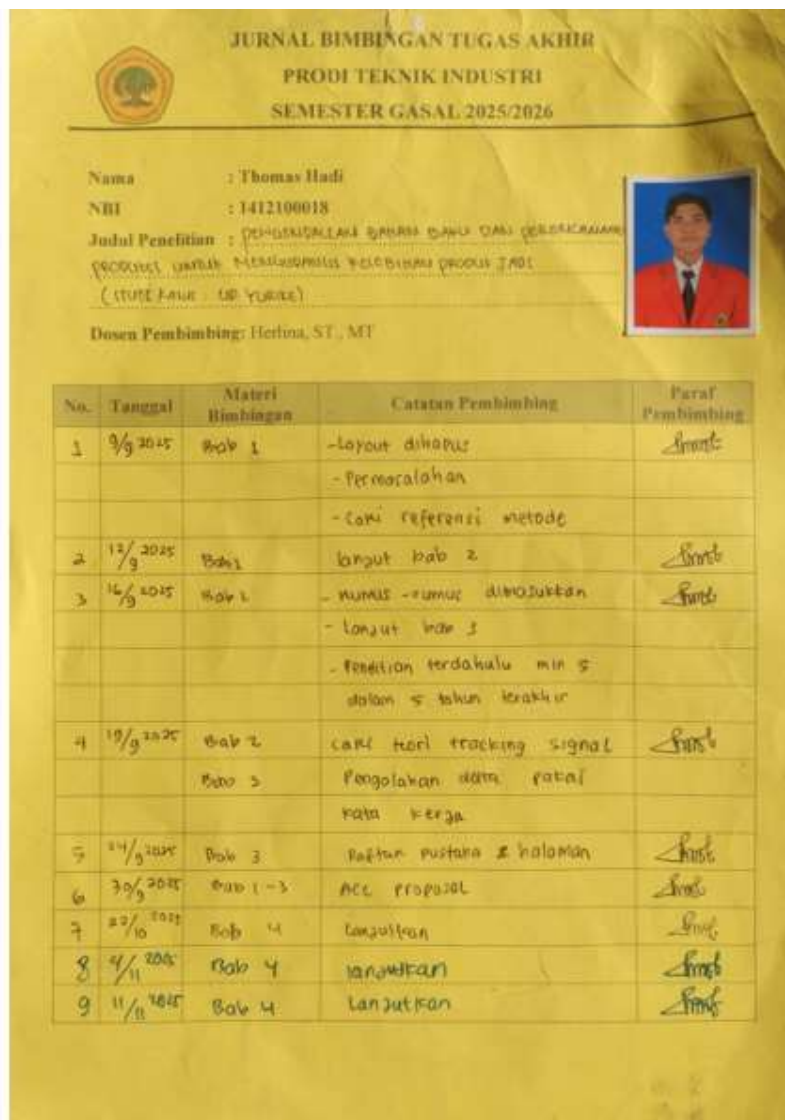 JURNAL BIMBINGAN TUGAS AKHIR
PRODI TEKNIK INDUSTRI
SEMESTER GASAL 2025/2026
Nama : Thomas Hadi
NBI : 1412100018
Judul Penelitian : PENGENDALIAN BAHAN BAKU DAN PERENCANAAN
PRODUKSI UNTUK MENGURANGI KELEBIHAN PRODUK JADI
(STUDI KASUS : UD YURIKE)
Dosen Pembimbing: Herlina, ST., MT
No. Tanggal Materi Bimbingan Catatan Pembimbing Paraf Pembimbing
1 9/9 2025 Bab 1 -Layout dihapus
- Permasalahan
- Cari referensi metode
2 12/9 2025 Bab 1 lanjut bab 2
3 16/9 2025 Bab 2 - rumus - rumus dimasukkan
- Lanjut bab 3
- Penelitian terdahulu min 5
dalam 5 tahun terakhir
4 19/9 2025 Bab 2 cari teori tracking signal
Bab 3 Pengolahan data pakai
kata kerja
5 24/9 2025 Bab 3 Daftar pustaka & halaman
6 30/9 2025 Bab 1-3 ACC proposal
7 22/10 2025 Bab 4 Lanjutkan
8 4/11 2025 Bab 4 lanjutkan
9 11/11 2025 Bab 4 Lanjutkan